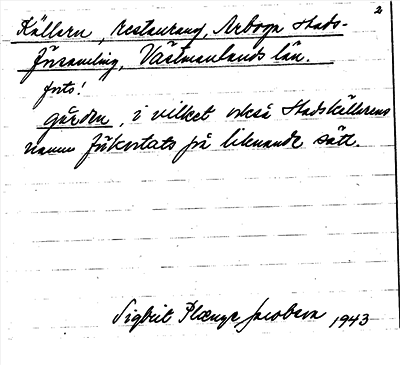 2
Källarn, restaurang, Arboga Stads-
församling, Västmanlands län.
forts!
gården, i vilket också Stadskällarens
namn förkortats på liknande sätt.
Sigbrit Plænge Jacobson 1943